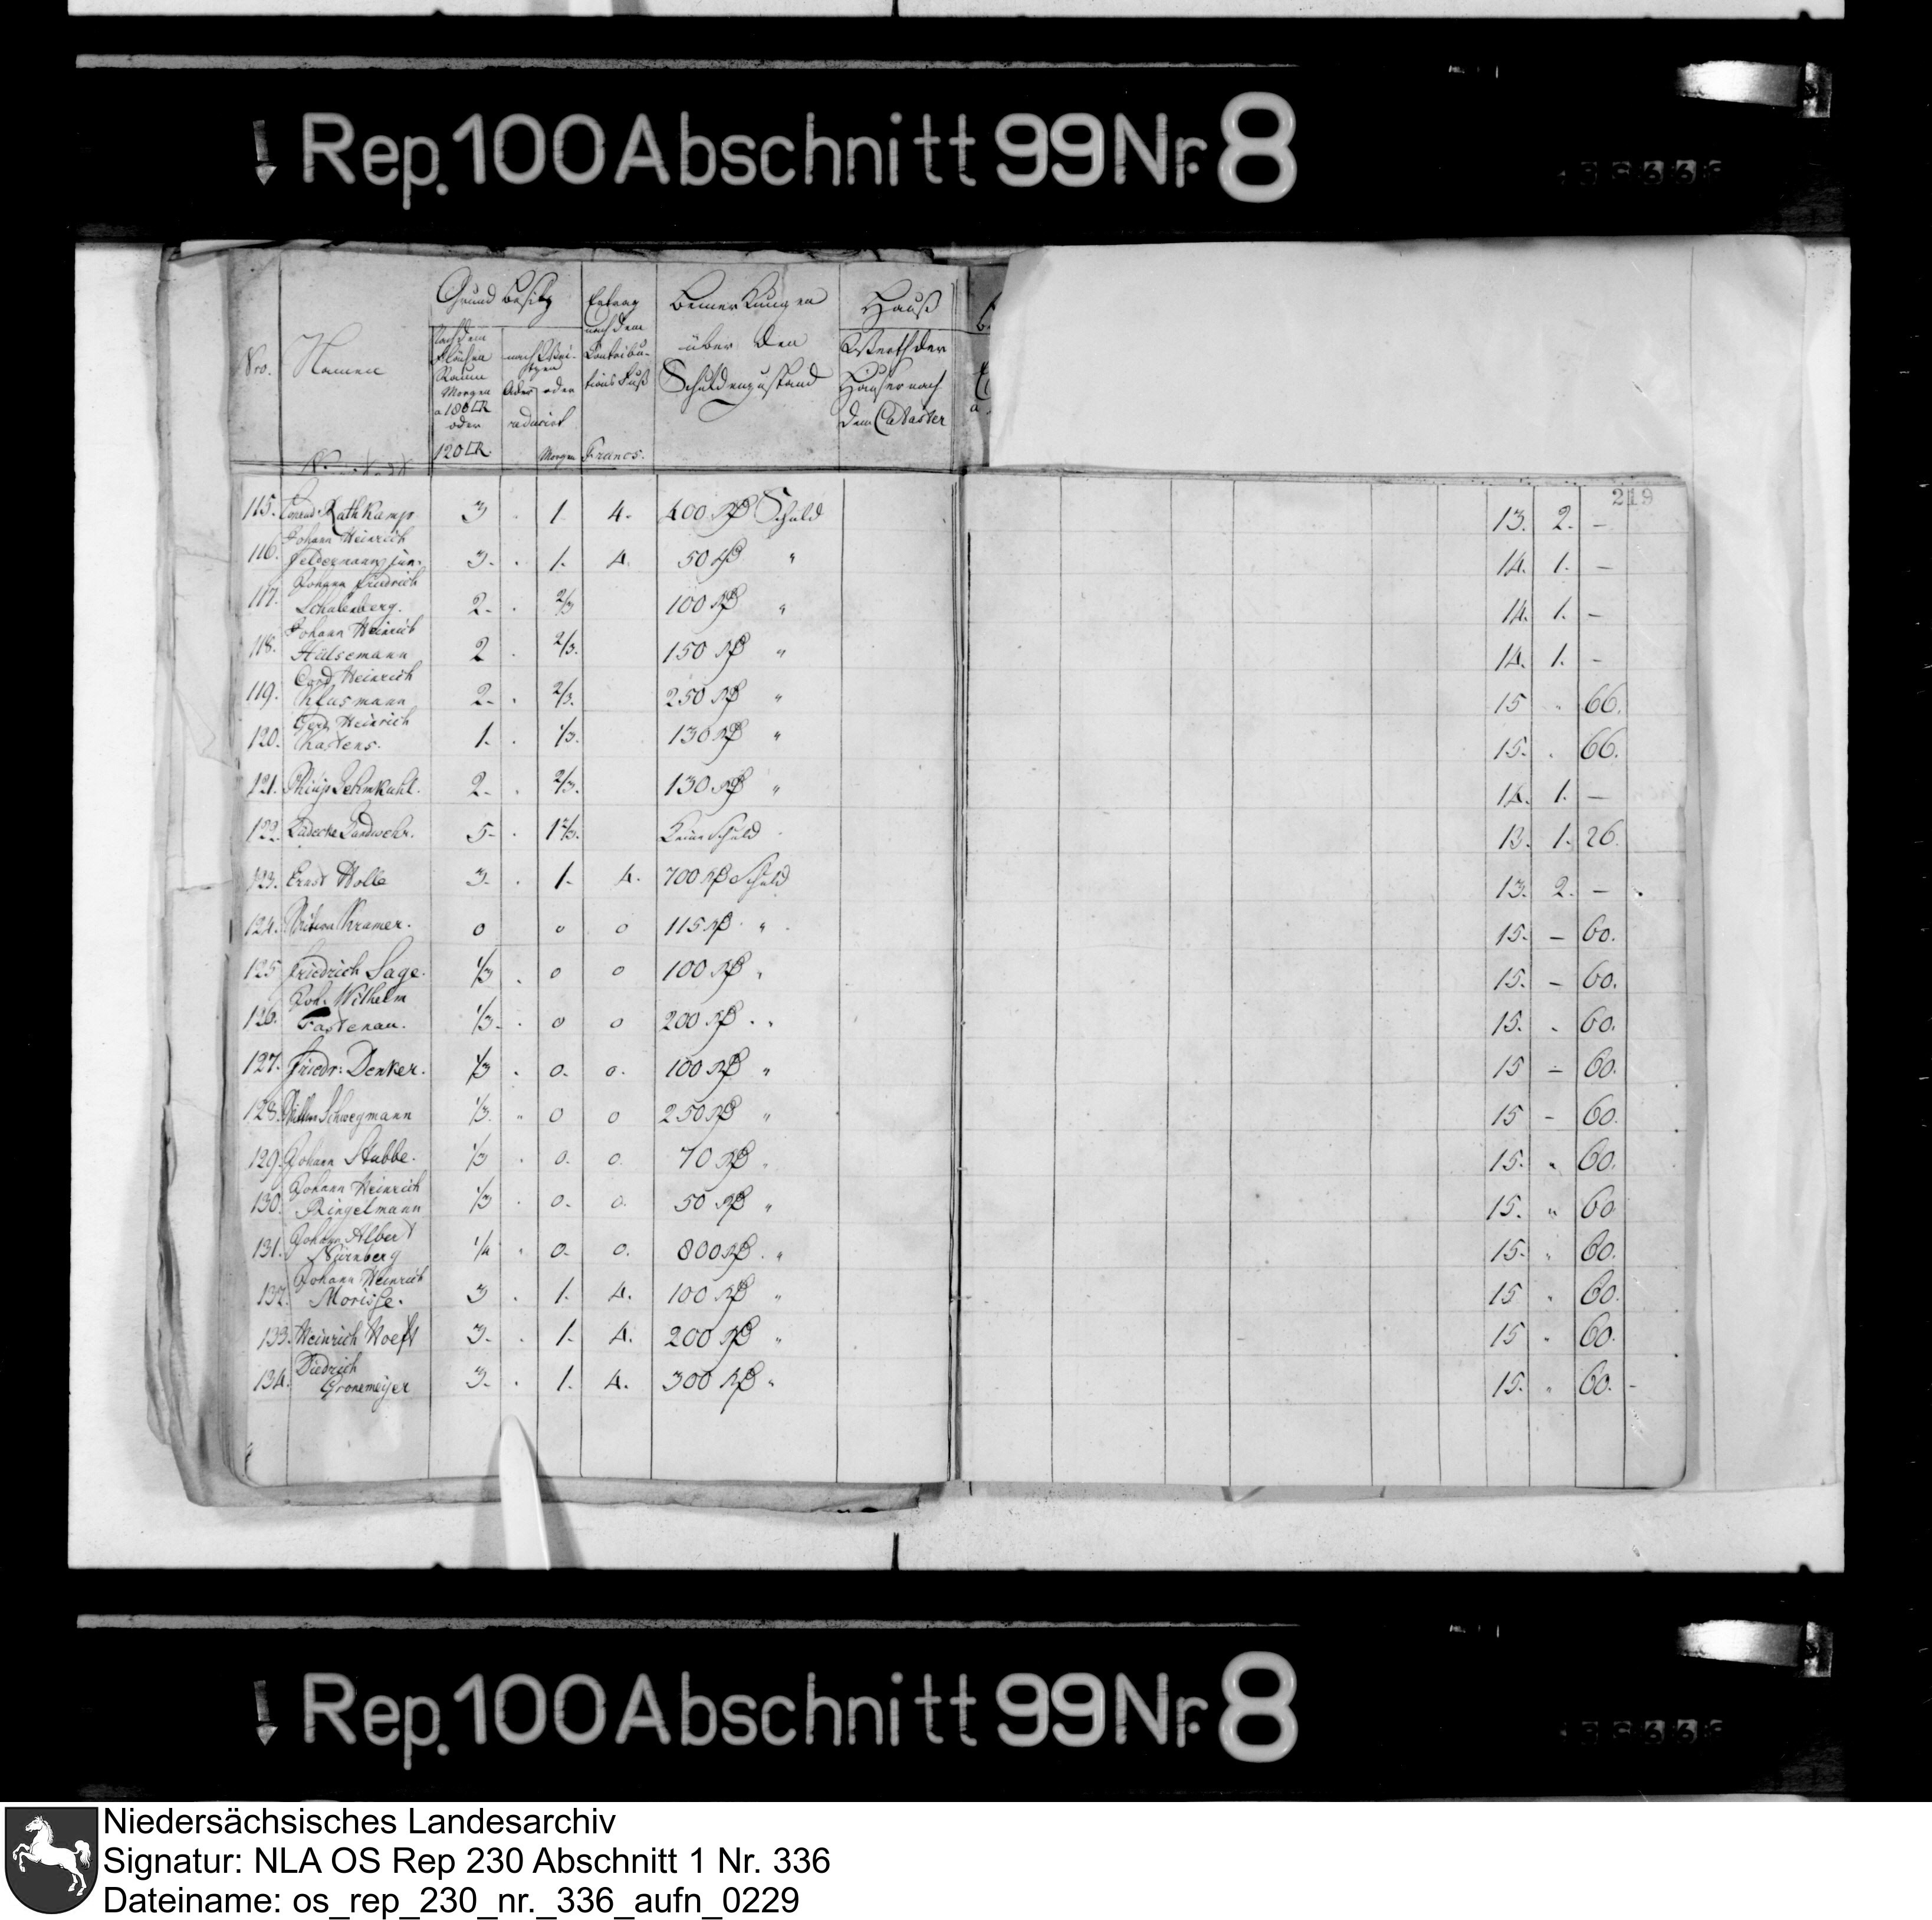 Rep. 100 Abschnitt 99 Nr. 8
Nro. Namen Grund Besitz Ertrag nach dem Contribu- tions Fuß Bemerkungen über den Schuldenzustand Hauß
nach dem Flächen Raum Morgen a 180 □R oder 120 □R. oder reducirt Morgen Francs. Werth der Häuser nach dem Cataster
219
115. Conrad Rathkamp 3 . 1 4. 400 Rthlr Schuld 13. 2. –
116. Johann Heinrich Feldermann jun. 3. . 1. 4 50 Rthlr " 14. 1. –
117. Johann Friedrich Schulenberg. 2. . 2/3 100 Rthlr " 14. 1. –
118. Johann Heinrich Hülsemann 2 . 2/3. 150 Rthlr " 14. 1. –
119. Cord Heinrich Klusmann 2. . 2/3. 250 Rthlr " 15 . 66.
120. Gerd Heinrich Kastens. 1. . 1/3. 130 Rthlr " 15. . 66.
121. Philip Lehmkuhl. 2. . 2/3. 130 Rthlr " 14. 1. –
122. Ladecke Landwehr. 5. . 1 2/3. Keine Schuld 13. 1. 26.
123. Ernst Nolle 3. . 1. 4. 700 Rthlr Schuld 13. 2. –
124. Kramer. 0 0 0 115 Rthlr " 15. – 60.
125 Friedrich Sage. 1/3 . 0 0 100 Rthlr " 15. – 60.
126. Joh. Wilhelm Fastenau. 1/3. . 0 0 200 Rthlr . " 15. . 60.
127. Friedr: Denker. 1/3 . 0. 0. 100 Rthlr " 15 – 60.
128. Schwegmann 1/3. " 0 0 250 Rthlr " 15 – 60.
129. Johann Stubbe. 1/3 . 0. 0. 70 Rthlr " 15. " 60.
130. Johann Heinrich Ringelmann 1/3 . 0. 0. 50 Rthlr " 15. " 60
131. Johann Albert Nürnberg 1/4 " 0. 0. 800 Rthlr . " 15. " 60.
132. Johann Heinrich Morisse. 3 . 1. 4. 100 Rthlr " 15 . 60.
133. Heinrich Hoeft 3. . 1. 4. 200 Rthlr " 15 " 60.
134. Diedrich Gronemeijer 3. . 1. 4. 300 Rthlr " 15. " 60. –
Rep. 100 Abschnitt 99 Nr. 8
Niedersächsisches Landesarchiv
Signatur: NLA OS Rep 230 Abschnitt 1 Nr. 336
Dateiname: os_rep_230_nr._336_aufn_0229